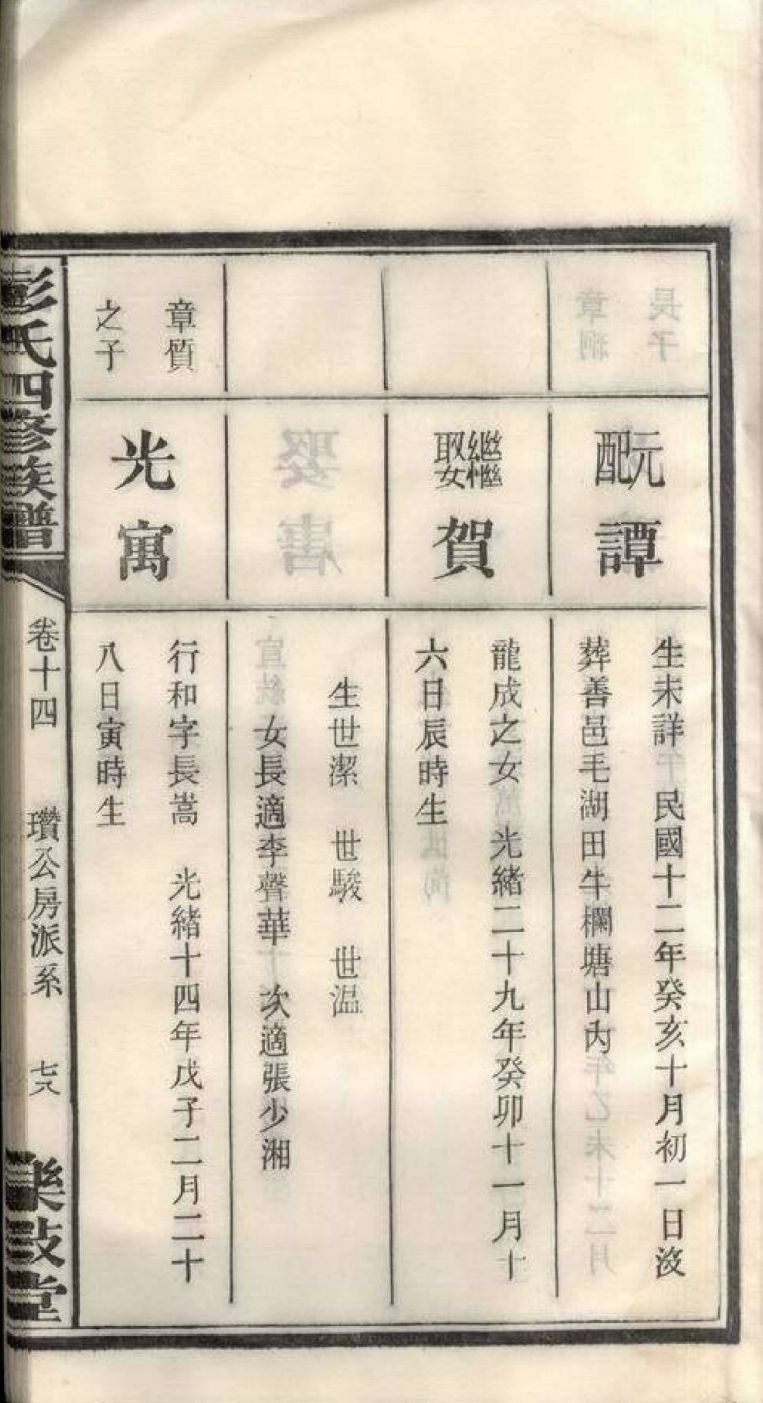 元配
譚
生未詳 民國十二年癸亥十月初一日沒
葬善邑毛湖田牛欄塘山內
繼娶
賀
龍成之女 光緒二十九年癸卯十一月十
六日辰時生
生世潔 世駿 世温
女長適李聲華 次適張少湘
章質
之子
光寓
行和字長嵩 光緒十四年戊子二月二十
八日寅時生
彭氏四修族譜
卷十四 瓚公房派系 七八
堂